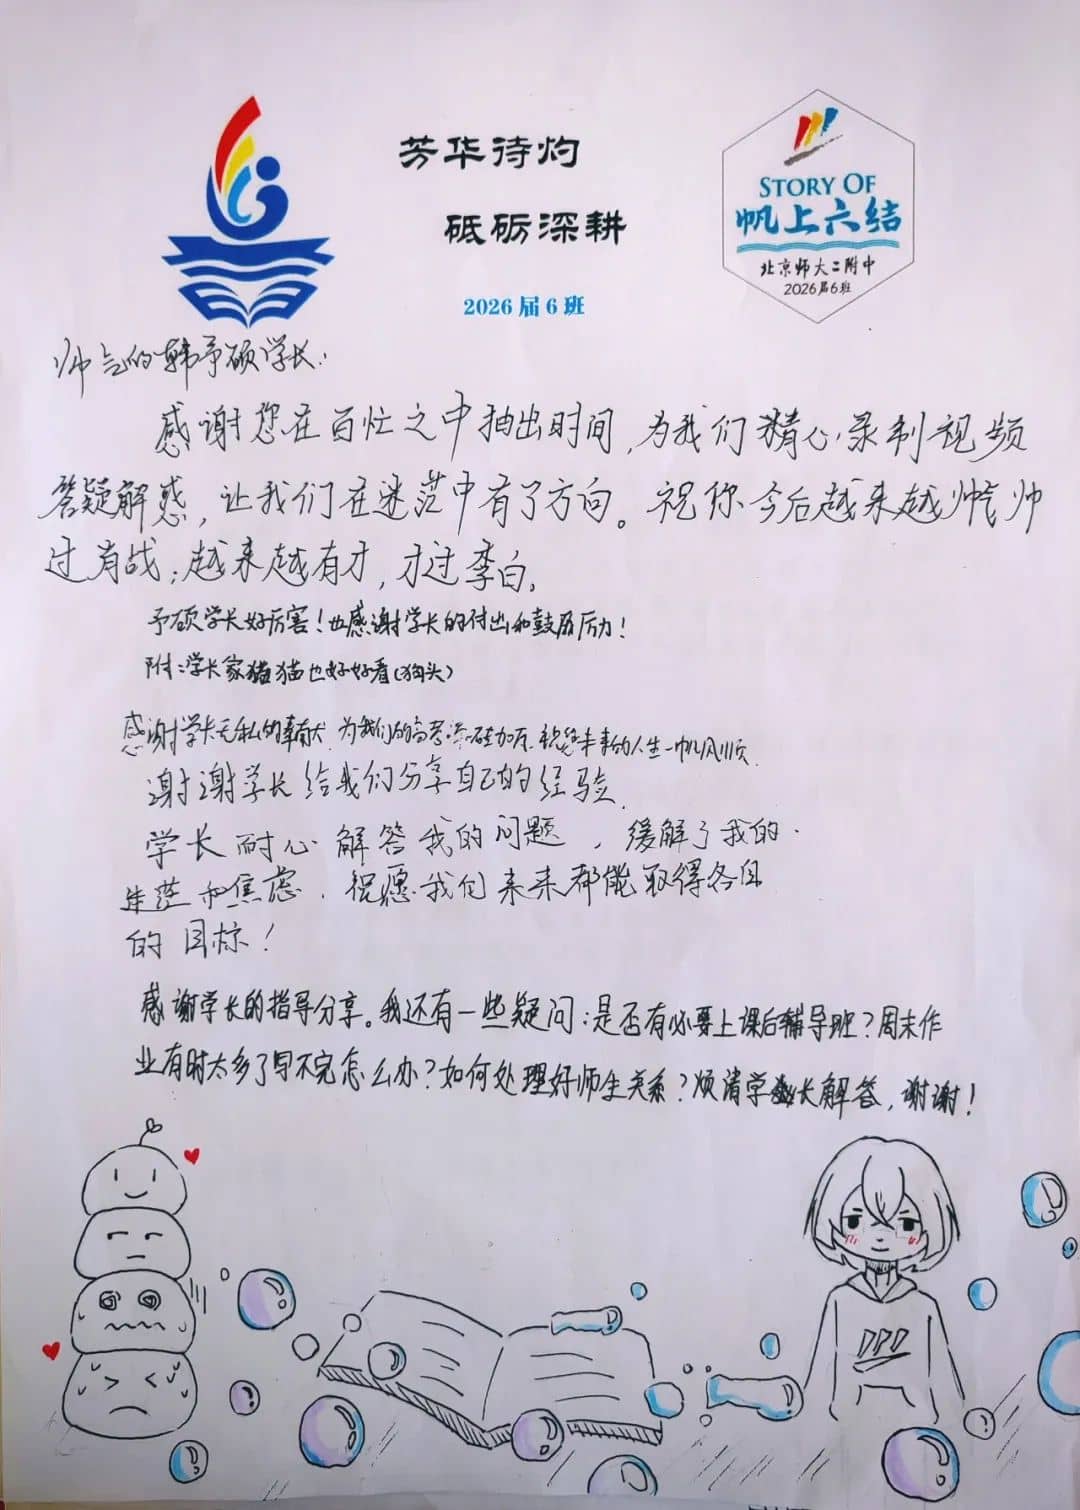 芳华待灼
砥砺深耕
2026届6班
STORY OF
帆上六结
北京师大二附中
2026届6班
帅气的韩予硕学长:
感谢您在百忙之中抽出时间,为我们精心录制视频
答疑解惑,让我们在迷茫中有了方向。祝你今后越来越帅气,帅
过肖战;越来越有才,才过李白。
予硕学长好厉害!也感谢学长的付出和鼓励!
附:学长家猫猫也好好看(狗头)
感谢学长无私的奉献,为我们的高考添砖加瓦,祝您未来的人生一帆风顺.
谢谢学长给我们分享自己的经验.
学长耐心解答我的问题,缓解了我的
迷茫和焦虑.祝愿我们未来都能取得各自
的目标!
感谢学长的指导分享。我还有一些疑问:是否有必要上课后辅导班?周末作
业有时太多了写不完怎么办?如何处理好师生关系?烦请学长解答,谢谢!